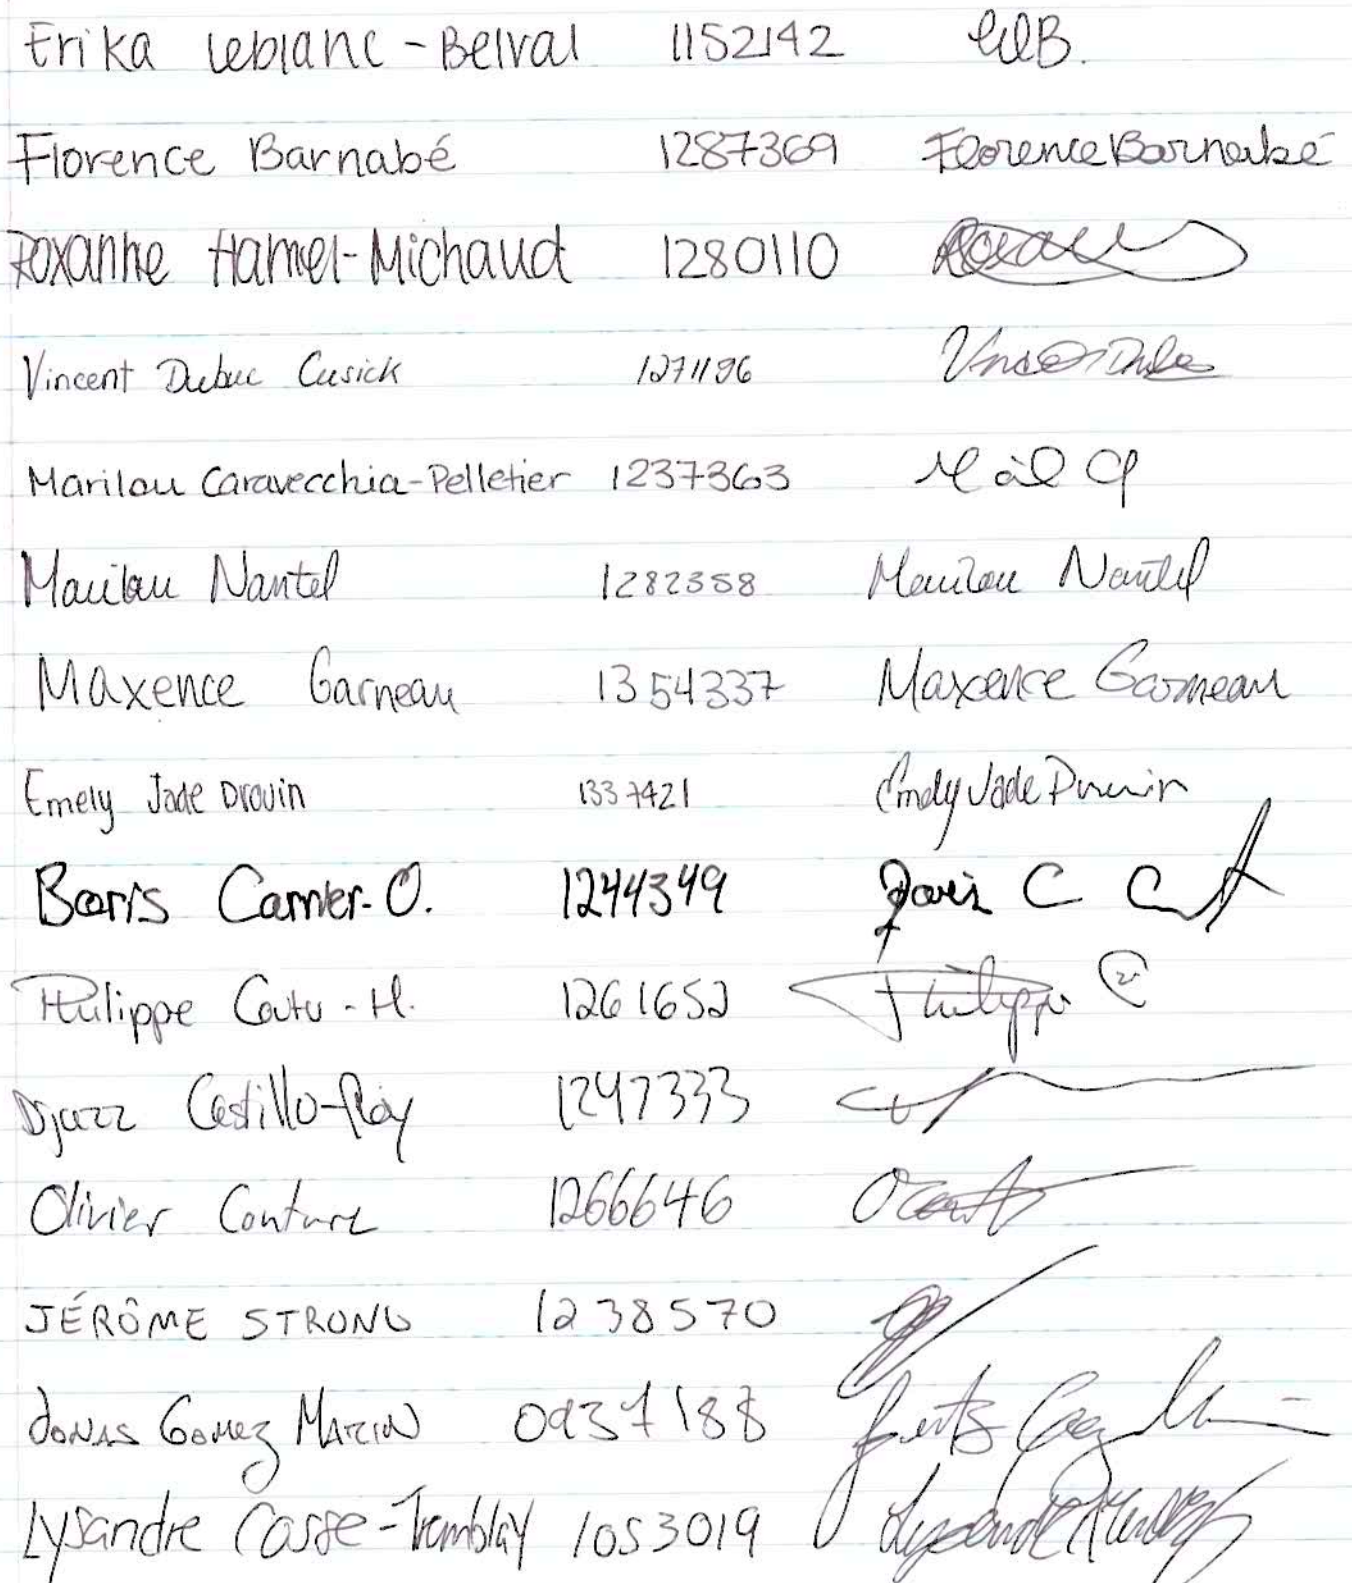 Erika Leblanc-Belval 1152142 ELB.
Florence Barnabé 1287369 Florence Barnabé
Roxanne Hamel-Michaud 1280110
Vincent Dubuc Cusick 1271196
Marilou Caravecchia-Pelletier 1237363
Marilou Nantel 1282358 Marilou Nantel
Maxence Garneau 1354337 Maxence Garneau
Emely Jade Drouin 1337421 Emely Jade Drouin
Boris Carrier-O. 1244349
Philippe Coutu-H. 1261652 Philippe
Djazz Castillo-Roy 1247333
Olivier Couture 1266646
JÉRÔME STRONG 1238570
Jonas Gomez Marin 0937188
Lysandre Casse-Tremblay 1053019